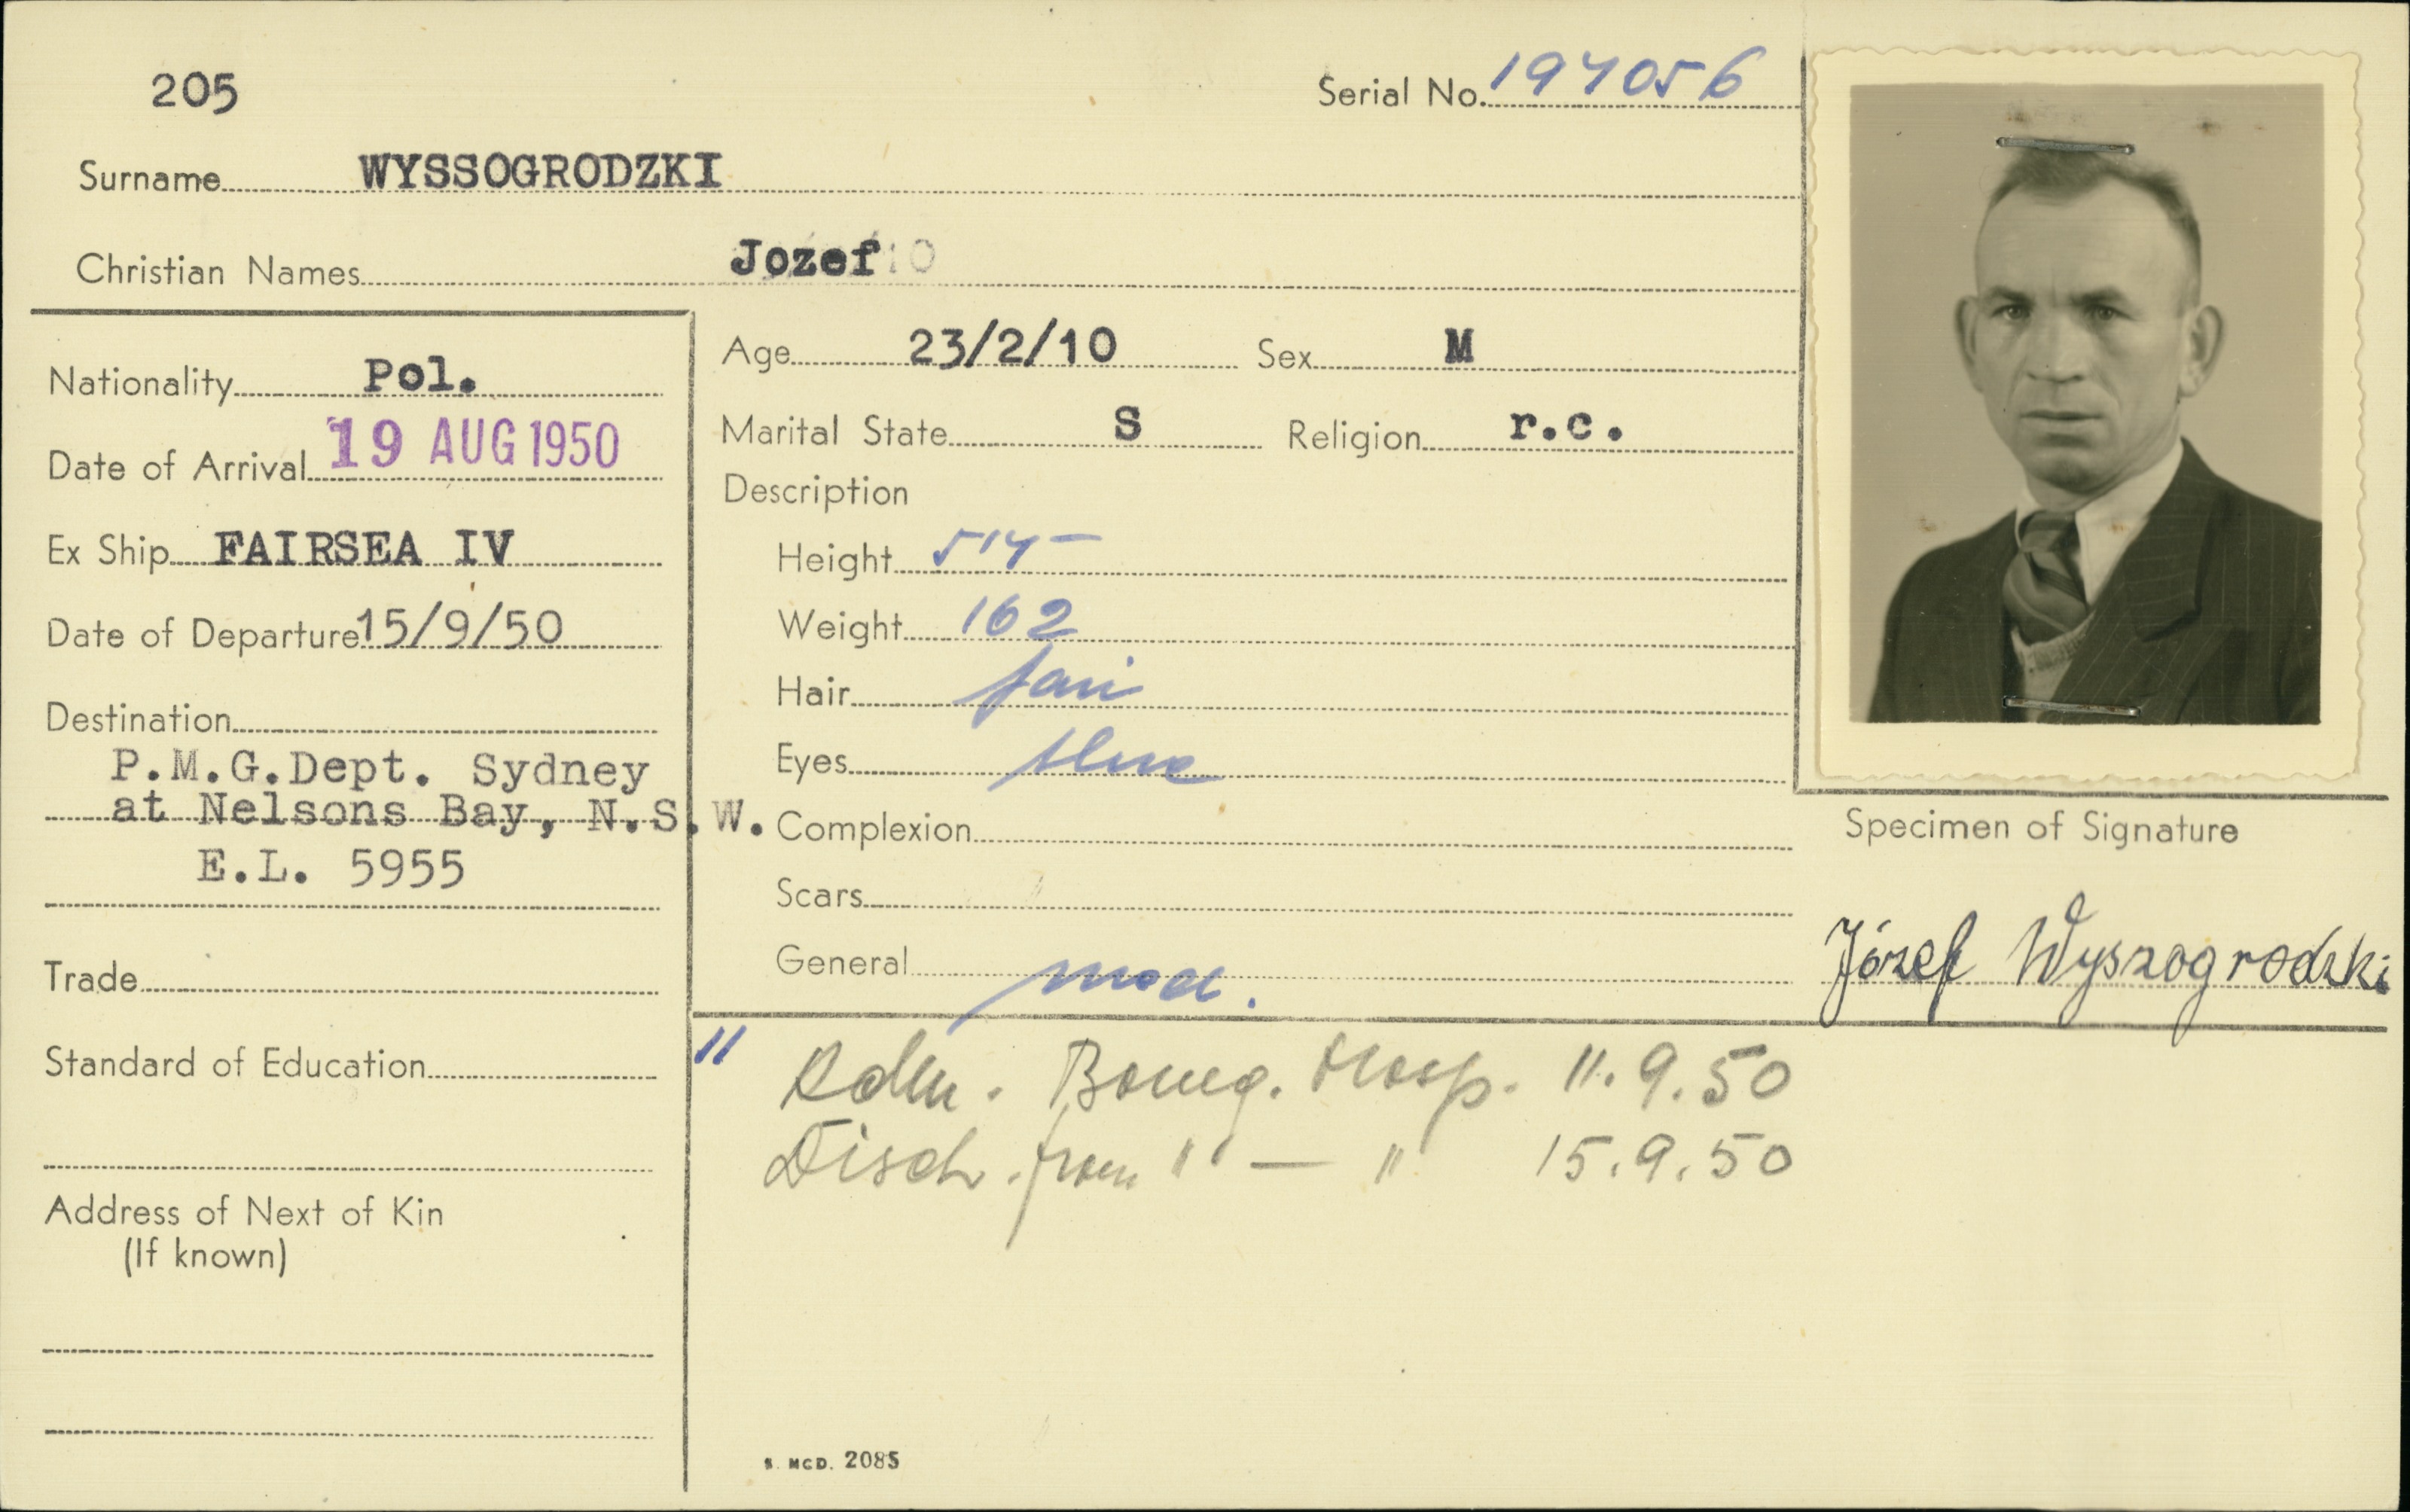 205
Serial No. 197056
Surname WYSSOGRODZKI
Christian Names Jozef
Nationality Pol.
Date of Arrival 19 AUG 1950
Ex Ship FAIRSEA IV
Date of Departure 15/9/50
Destination
P.M.G.Dept. Sydney
at Nelsons Bay, N.S.W.
E.L. 5955
Trade
Standard of Education
Address of Next of Kin
(If known)
Age 23/2/10 Sex M
Marital State S Religion r.c.
Description
Height
Weight 162
Hair fair
Eyes blue
Complexion
Scars
General med.
Specimen of Signature
Józef Wyszogrodzki
" Adm. Boneg. Hosp. 11.9.50
Disch. from " — " 15.9.50
S. MCD. 2085